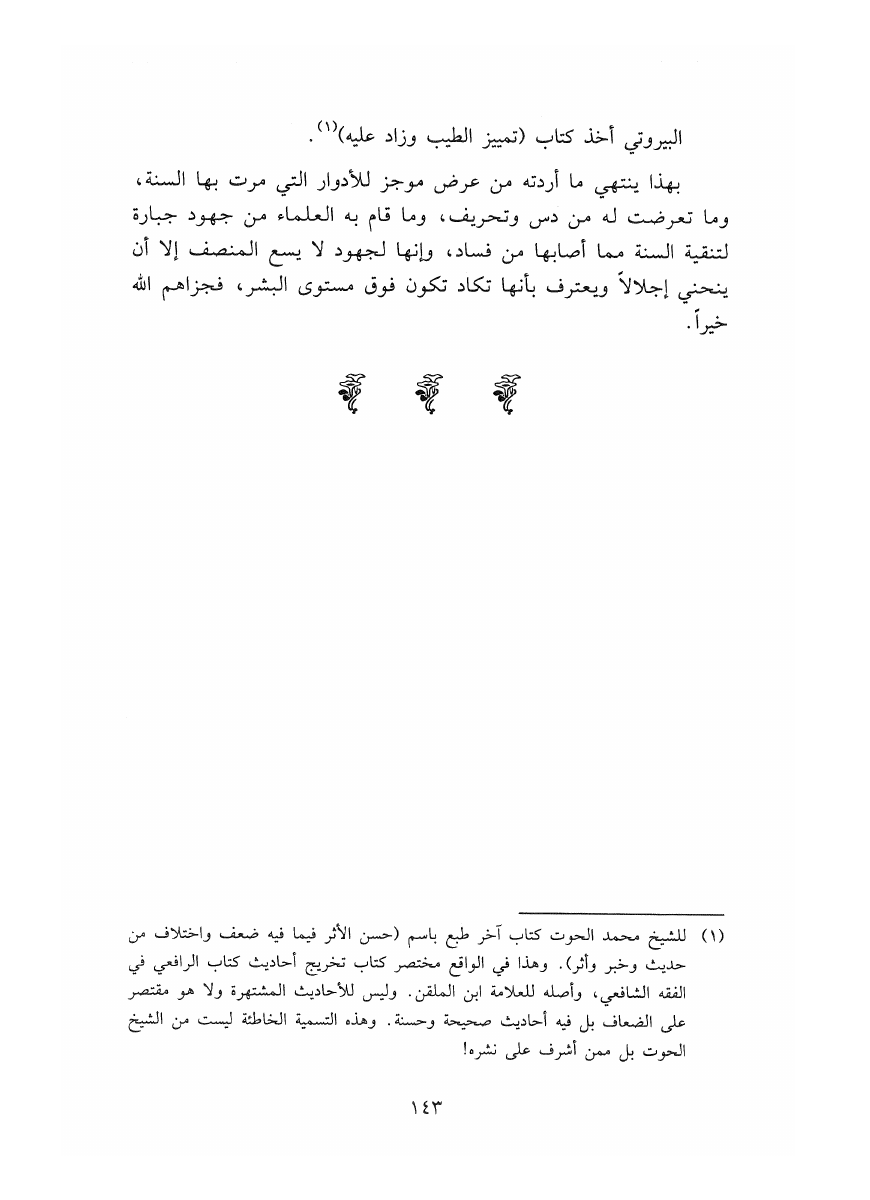 البيروتي أخذ كتاب (تمييز الطيب وزاد عليه)(١).
بهذا ينتهي ما أردته من عرض موجز للأدوار التي مرت بها السنة،
وما تعرضت له من دس وتحريف، وما قام به العلماء من جهود جبارة
لتنقية السنة مما أصابها من فساد، وإنها لجهود لا يسع المنصف إلا أن
ينحني إجلالاً ويعترف بأنها تكاد تكون فوق مستوى البشر، فجزاهم الله
خيراً.
(١) للشيخ محمد الحوت كتاب آخر طبع باسم (حسن الأثر فيما فيه ضعف واختلاف من
حديث وخبر وأثر). وهذا في الواقع مختصر كتاب تخريج أحاديث كتاب الرافعي في
الفقه الشافعي، وأصله للعلامة ابن الملقن. وليس للأحاديث المشتهرة ولا هو مقتصر
على الضعاف بل فيه أحاديث صحيحة وحسنة. وهذه التسمية الخاطئة ليست من الشيخ
الحوت بل ممن أشرف على نشره!
١٤٣